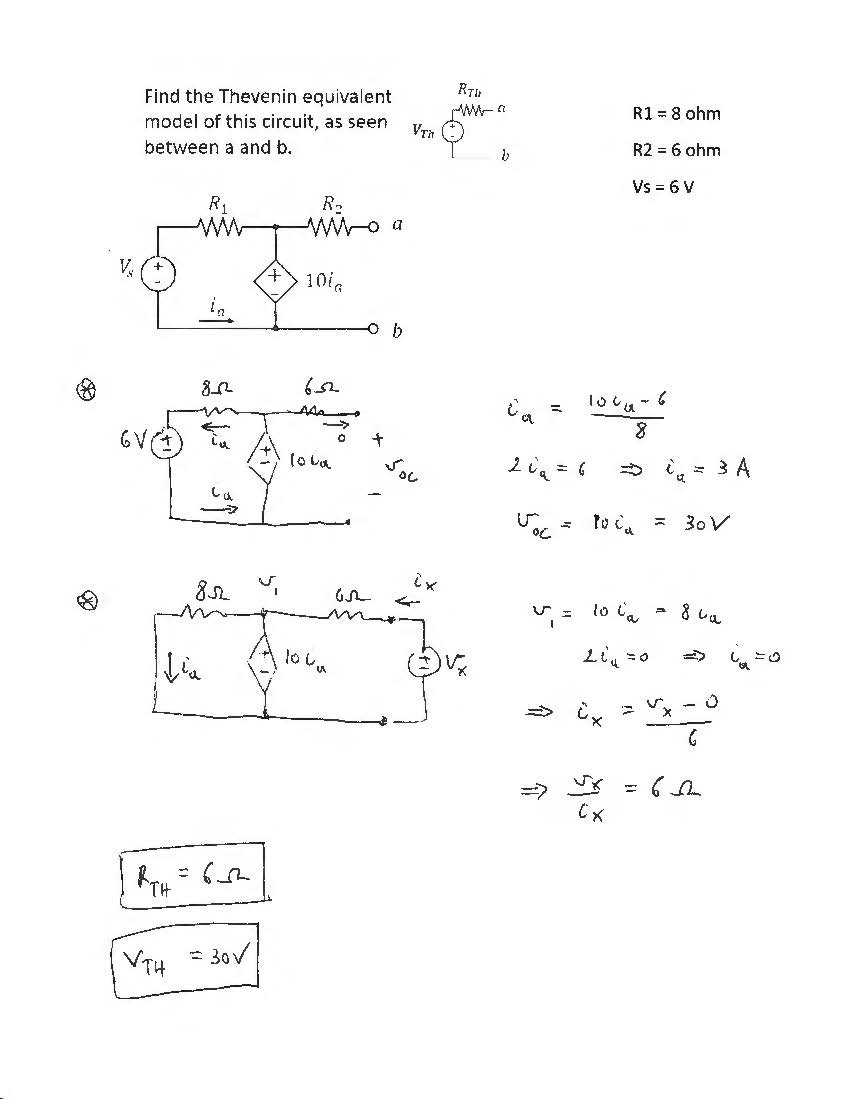 Find the Thevenin equivalent
model of this circuit, as seen
between a and b.
R_Th
a
V_Th
+
-
b
R1 = 8 ohm
R2 = 6 ohm
Vs = 6 V
R₁ R₂
a
V_s
+
-
+
-
10i_a
i_a
b
8Ω 6Ω
6V
+
-
i_a
0
+
+
-
10 i_a
v_oc
-
i_a
i_a = (10 i_a - 6) / 8
2 i_a = 6 ⇒ i_a = 3 A
v_oc = 10 i_a = 30V
8Ω v₁ 6Ω i_x
i_a
+
-
10 i_a
+
-
v_x
v₁ = 10 i_a = 8 i_a
2 i_a = 0 ⇒ i_a = 0
⇒ i_x = (v_x - 0) / 6
⇒ v_x / i_x = 6 Ω
R_TH = 6Ω
V_TH = 30V